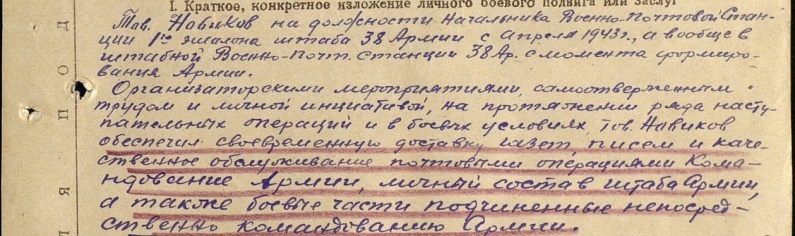 I. Краткое, конкретное изложение личного боевого подвига или заслуг
Тов. Новиков на должности Начальника Военно-Почтовой Стан-
ции 1го эшалона штаба 38 Армии с апреля 1943г., а вообще в
штабной Военно-Почт. Станции 38 Ар. с момента сформиро-
вания Армии.
Организаторскими мероприятиями, самоотверженным
трудом и личной инициативой, на протяжении ряда насту-
пательных операций и в боевых условиях, тов. Новиков
обеспечил своевременную доставку газет, писем и каче-
ственное обслуживание почтовыми операциями Кома-
ндование Армии, личный состав штаба Армии,
а также боевые части подчиненные непосред-
ственно командованию Армии.
П О Д
Л Я